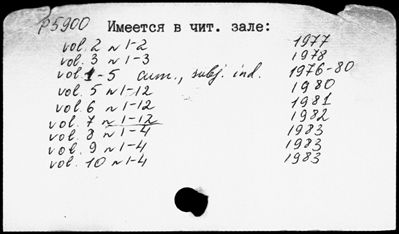 P5900 Имеется в чит. зале:
vol. 2 N 1-2 1977
vol. 3 N 1-3 1978
vol. 1-5 cum., subj. ind. 1976-80
vol. 5 N 1-12 1980
vol. 6 N 1-12 1981
vol. 7 N 1-12 1982
vol. 8 N 1-4 1983
vol. 9 N 1-4 1983
vol. 10 N 1-4 1983